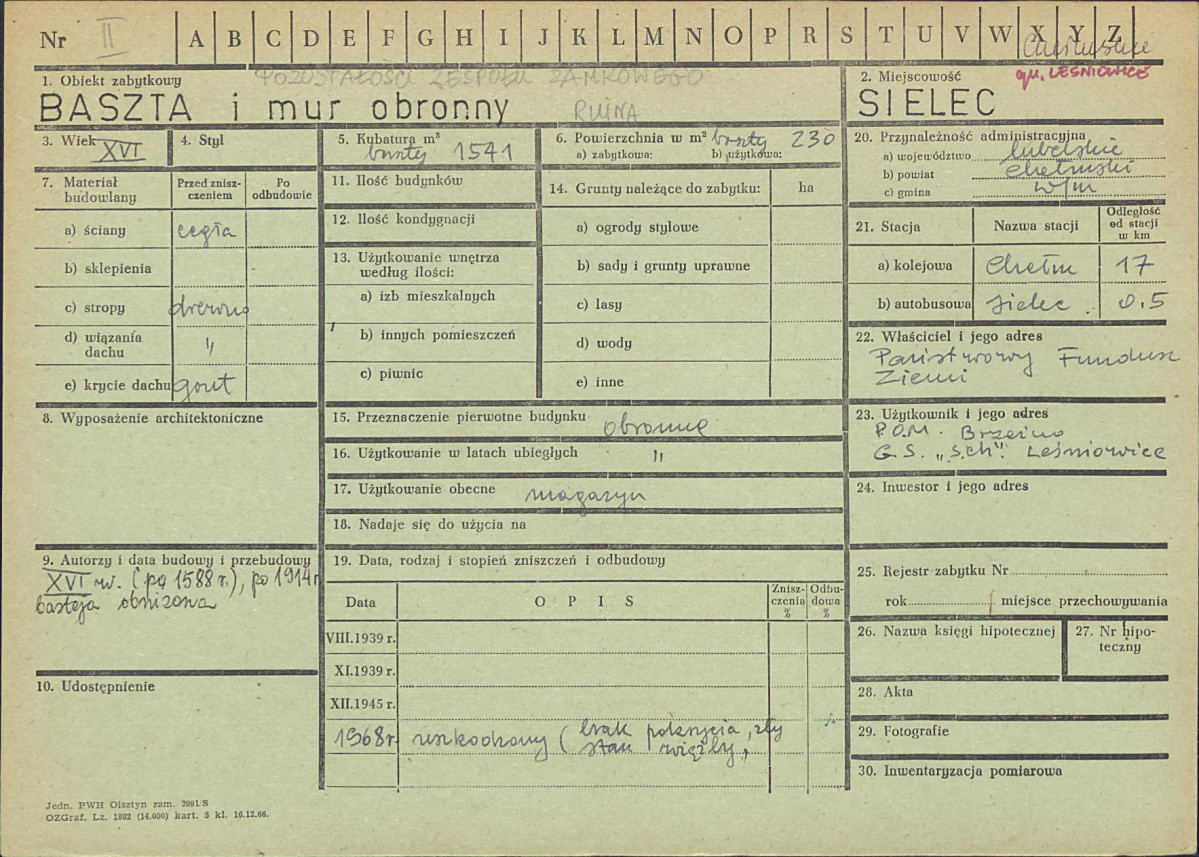 Nr II A B C D E F G H I J K L M N O P R S T U V W X Y Z
gm. LEŚNIOWICE
1. Obiekt zabytkowy
POZOSTAŁOŚCI ZESPOŁU ZAMKOWEGO
BASZTA i mur obronny
RUINA
2. Miejscowość
SIELEC
3. Wiek XVI
4. Styl
5. Kubatura m³
baszty 1541
6. Powierzchnia w m² baszty 230
a) zabytkowa: b) użytkowa:
7. Materiał budowlany
Przed zniszczeniem
Po odbudowie
a) ściany cegła
b) sklepienia
c) stropy drewno
d) wiązania dachu "
e) krycie dachu gont
8. Wyposażenie architektoniczne
9. Autorzy i data budowy i przebudowy
XVI w. (pq 1588 r.), po 1914 r.
basteja obniżona
10. Udostępnienie
11. Ilość budynków
12. Ilość kondygnacji
13. Użytkowanie wnętrza
według ilości:
a) izb mieszkalnych
b) innych pomieszczeń
c) piwnic
14. Grunty należące do zabytku: ha
a) ogrody stylowe
b) sady i grunty uprawne
c) lasy
d) wody
e) inne
15. Przeznaczenie pierwotne budynku obronne
16. Użytkowanie w latach ubiegłych "
17. Użytkowanie obecne magazyn
18. Nadaje się do użycia na
19. Data, rodzaj i stopień zniszczeń i odbudowy
Data OPIS Zniszczenia % Odbudowa %
VIII.1939 r.
XI.1939 r.
XII.1945 r.
1968 r. uszkodzony (brak pokrycia, zły
stan więźby,
20. Przynależność administracyjna
a) województwo lubelskie
b) powiat chełmski
c) gmina w/m
21. Stacja Nazwa stacji Odległość od stacji w km
a) kolejowa Chełm 17
b) autobusowa Sielec 0.5
22. Właściciel i jego adres
Państwowy Fundusz
Ziemi
23. Użytkownik i jego adres
P.O.M. Brzeźno
G.S. „S.ch". Leśniowice
24. Inwestor i jego adres
25. Rejestr zabytku Nr
rok miejsce przechowywania
26. Nazwa księgi hipotecznej
27. Nr hipoteczny
28. Akta
29. Fotografie
30. Inwentaryzacja pomiarowa
Jedn. PWH Olsztyn zam. 3991/S
OZGraf. Lz. 1882 (14.000) kart. 5 kl. 16.12.66.